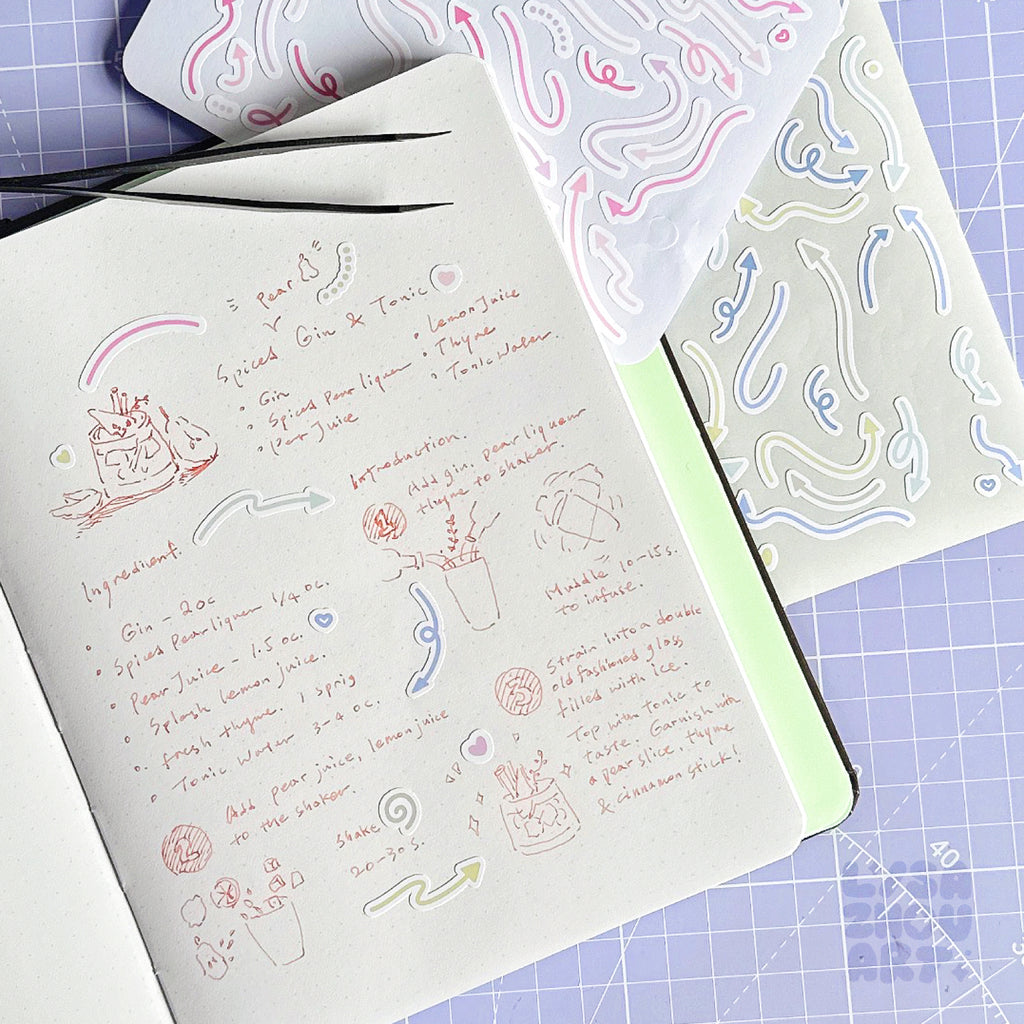 Pear
Spiced Gin & Tonic
• Gin
• Spiced Pear liquer
• Pear Juice
• Lemon Juice
• Thyme
• Tonic Water.
Introduction.
1
Add gin, pear liqueur
thyme to shaker.
Muddle 10-15s.
to infuse.
Ingredient.
• Gin - 2oc
• Spiced Pear liquer 1/4 oc.
• Pear Juice - 1.5 oc.
• Splash lemon juice.
• fresh thyme. 1 sprig
• Tonic Water 3-4 oc.
2
Add pear juice, lemon juice
to the shaker.
Shake
20-30s.
3
Strain into a double
old fashioned glass
filled with ice.
Top with tonic to
taste. Garnish with
a pear slice, thyme
& cinnamon stick!
40
LISA
ZHOU
ART